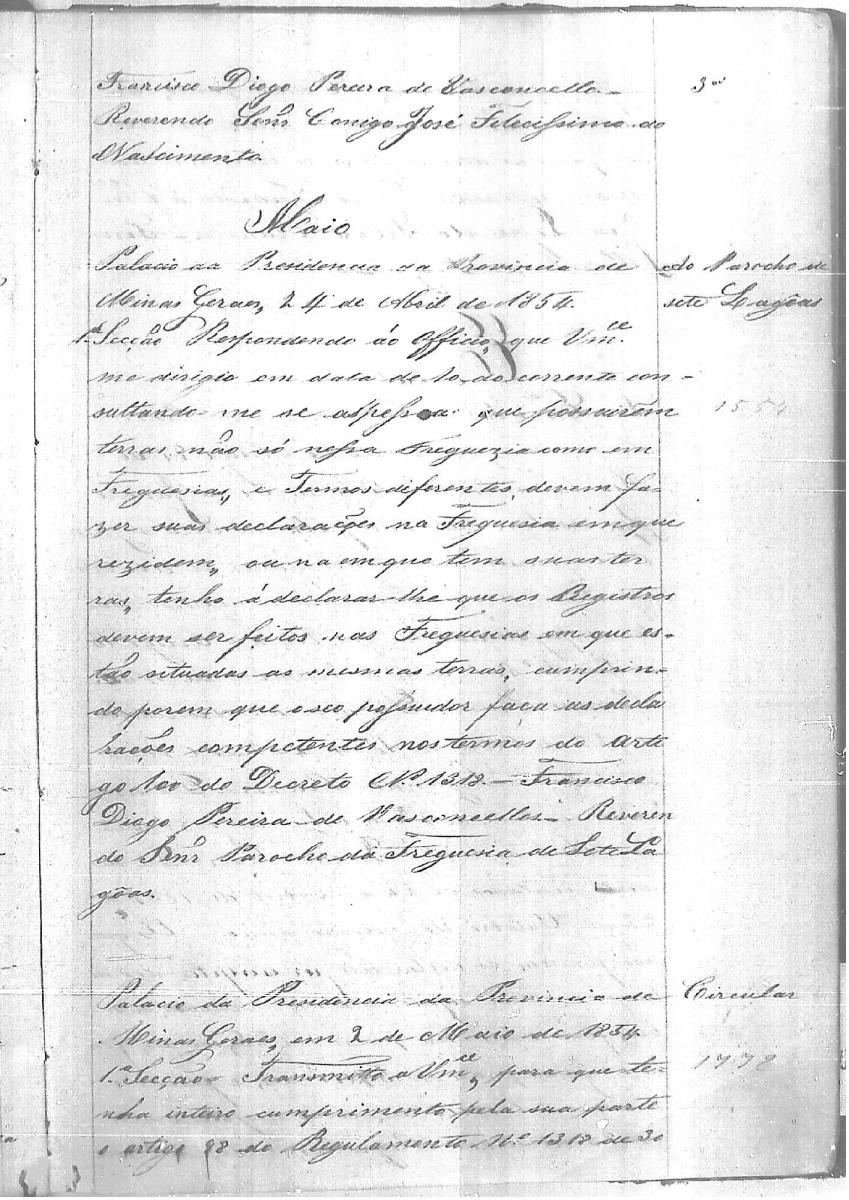 Francisco Diogo Pereira de Vasconcellos_
3
Reverendo Senr Conigo José Felecissimo do
Nascimento
Maio
Palacio da Presidencia da Provincia de
Minas Geraes, 24 de Abril de 1854.
Ao Parocho de
sete Lagôas
1ª Secção Respondendo áo Officio, que Vmce
me dirigio em data de 10 do corrente con-
sultando-me se as pessoa que possuirem
1554
terras não só nessa Freguezia como em
Freguesias, e Termos diferentes, devem fa-
zer suas declarações na Freguesia em que
rezidem, ou na em que tem suas ter
ras, tenho á declarar-lhe que os Registros
devem ser feitos nas Freguesias em que es-
tão situadas as mesmas terras, cumprin-
do porem que o seo possuidor faca as decla
rações competentes nos termos do arti
go 100 do Decreto Nº 1318_ Francisco
Diogo Pereira de Vasconcellos_ Reveren
do Senr Parocho da Freguesia de Sete La
gôas.
Palacio da Presidencia da Provincia de
Minas Geraes, em 2 de Maio de 1854
Circular
1ª Secção_ Transmitto a Vmce, para que te-
nha inteiro cumprimento pela sua parte
1778
o artigo 98 do Regulamento Nº 1318 de 30